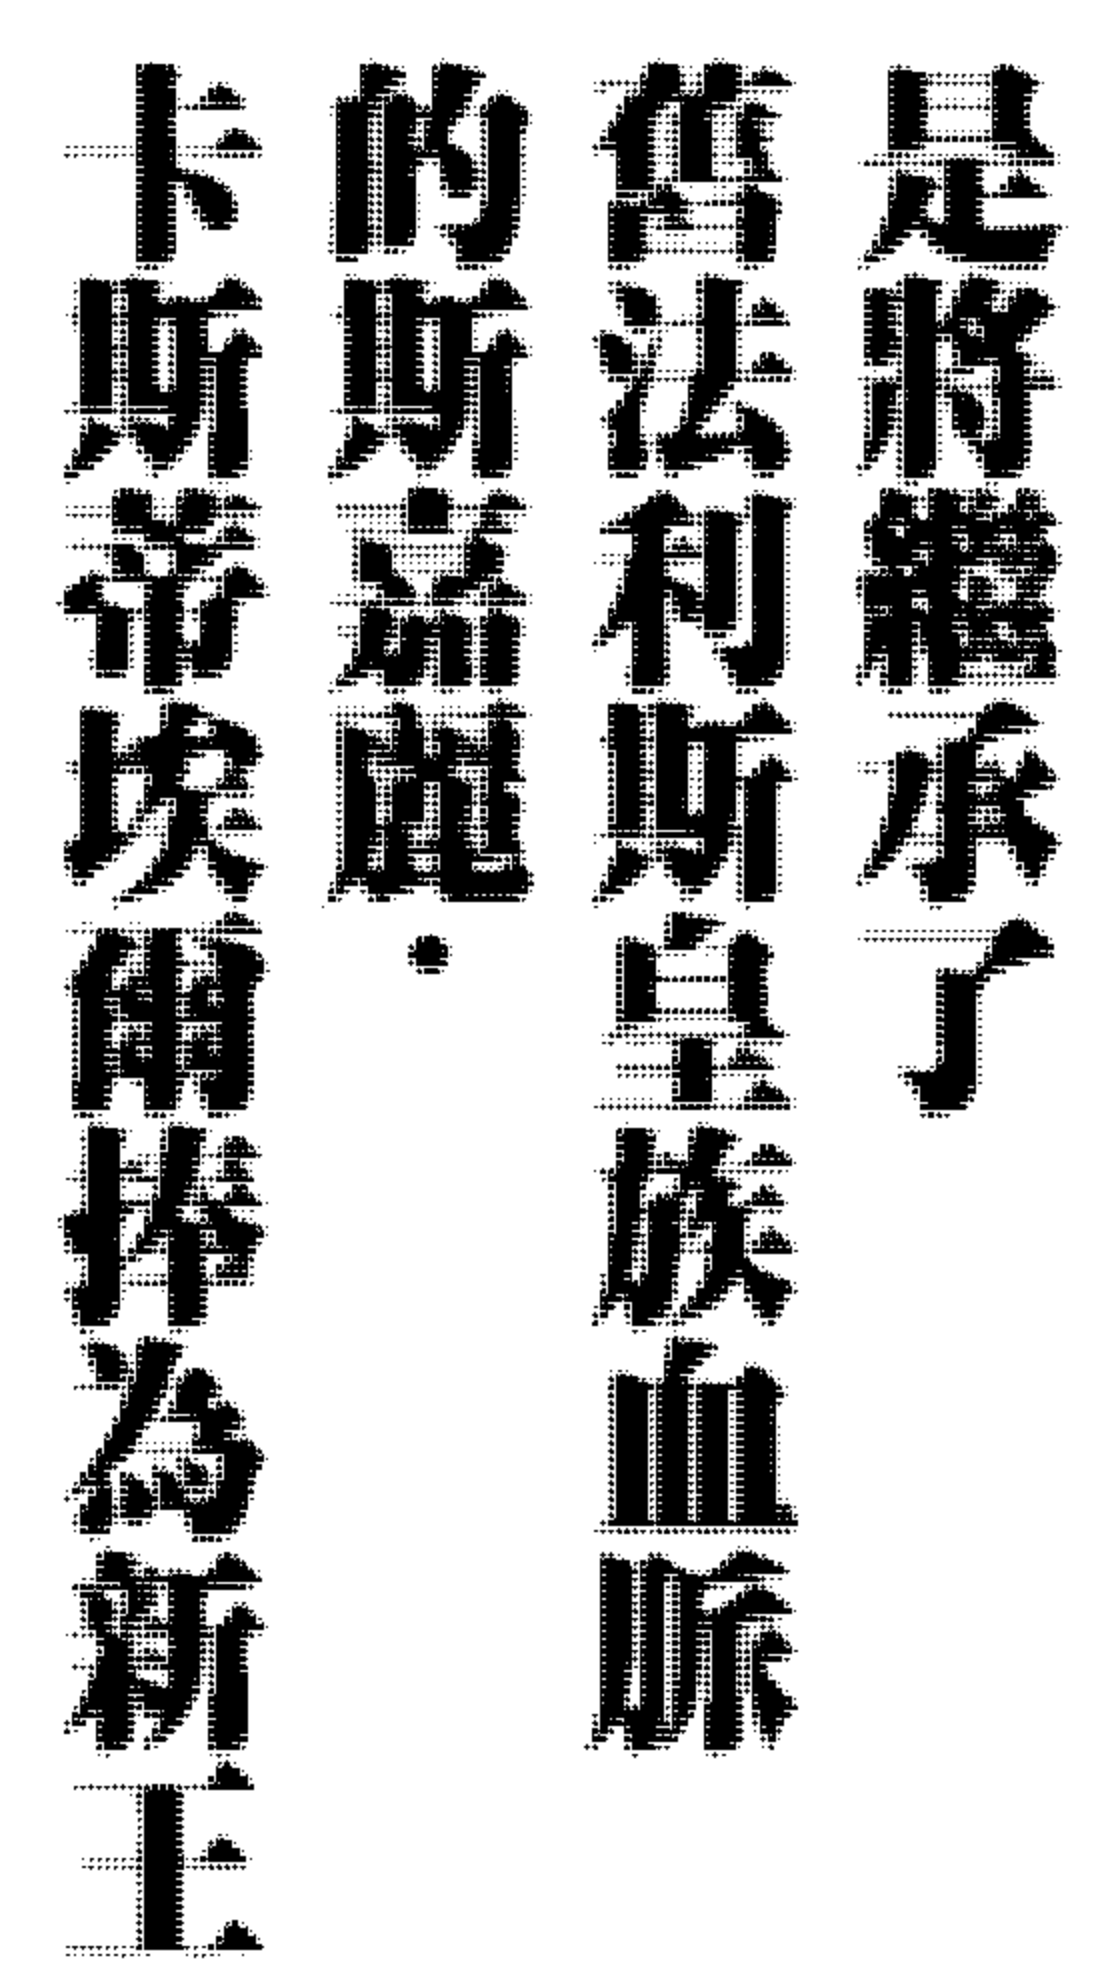 是將繼承了
舊法利斯皇族血脈
的斯嘉麗・
卡斯帝埃爾捧為新王